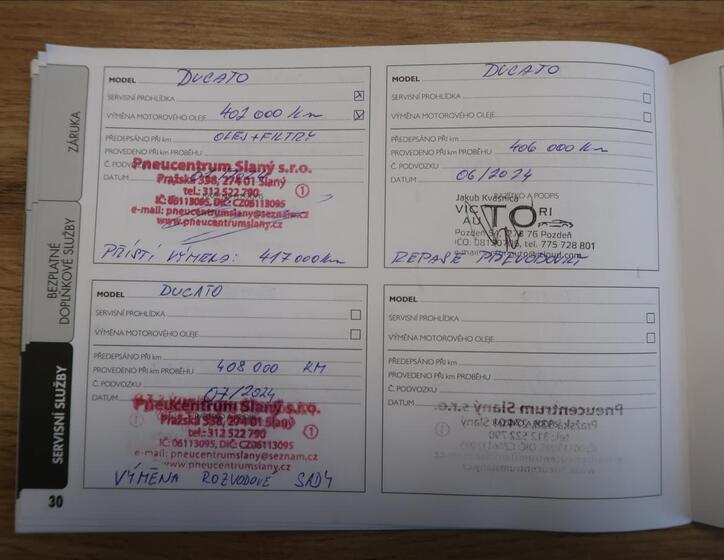 ZÁRUKA
BEZPLATNÉ
DOPLŇKOVÉ SLUŽBY
SERVISNÍ SLUŽBY
30
MODEL DUCATO
SERVISNÍ PROHLÍDKA
VÝMĚNA MOTOROVÉHO OLEJE 402 000 km
PŘEDEPSÁNO PŘI km OLEJ + FILTRY
PROVEDENO PŘI km PROBĚHU
Č. PODVOZKU
DATUM
Pneucentrum Slaný s.r.o.
Pražská 338, 274 01 Slaný
tel.: 312 522 790
IČ: 06113095, DIČ: CZ06113095
e-mail: pneucentrumslany@seznam.cz
www.pneucentrumslany.cz
1
PŘÍŠTÍ VÝMĚNA: 417 000 km
MODEL DUCATO
SERVISNÍ PROHLÍDKA
VÝMĚNA MOTOROVÉHO OLEJE
PŘEDEPSÁNO PŘI km
PROVEDENO PŘI km PROBĚHU 406 000 km
Č. PODVOZKU
DATUM 06/2024
RAZÍTKO A PODPIS
Jakub Kvasnica
VIC TO RI
AU
76 Pozdeň
tel. 775 728 801
REPASE PŘEVODOVKY
MODEL DUCATO
SERVISNÍ PROHLÍDKA
VÝMĚNA MOTOROVÉHO OLEJE
PŘEDEPSÁNO PŘI km
PROVEDENO PŘI km PROBĚHU 408 000 KM
Č. PODVOZKU
DATUM 07/2024
Pneucentrum Slaný s.r.o.
Pražská 338, 274 01 Slaný
tel.: 312 522 790
IČ: 06113095, DIČ: CZ06113095
e-mail: pneucentrumslany@seznam.cz
www.pneucentrumslany.cz
1
VÝMĚNA ROZVODOVÉ SADY
MODEL
SERVISNÍ PROHLÍDKA
VÝMĚNA MOTOROVÉHO OLEJE
PŘEDEPSÁNO PŘI km
PROVEDENO PŘI km PROBĚHU
Č. PODVOZKU
DATUM